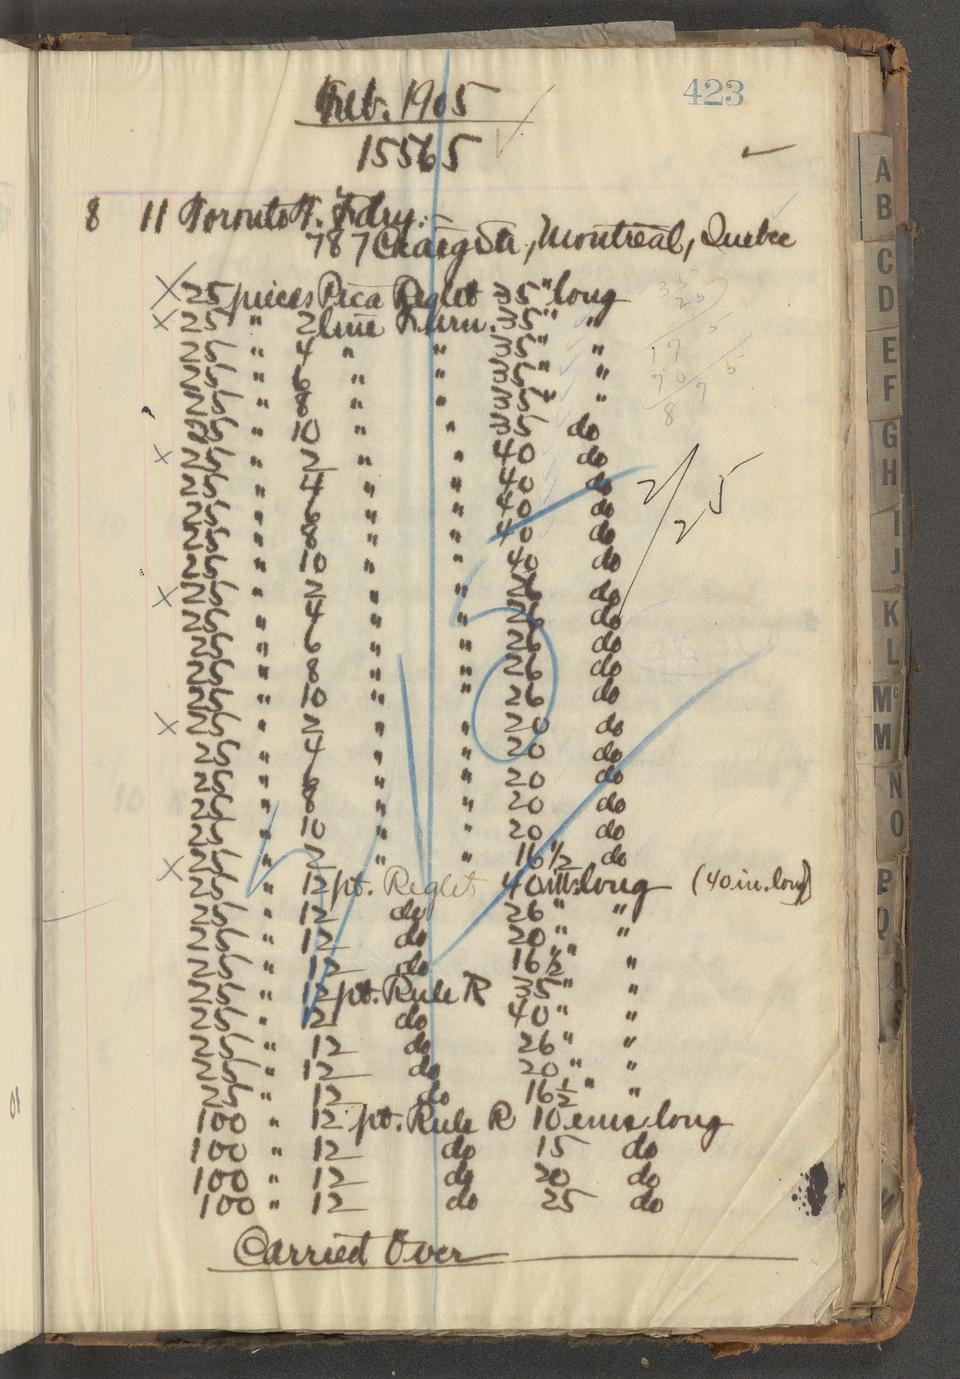 423
Feb. 1905
15565
8 11 Toronto T. Fdry.
787 Craig St., Montreal, Quebec
25 pieces Pica Reglet 35" long
25 " 2 line Furn. 35" "
25 " 4 " " 35" "
25 " 6 " " 35" "
25 " 8 " " 35" "
25 " 10 " " 35 do
25 " 2 " " 40 do
25 " 4 " " 40 do
25 " 6 " " 40 do
25 " 8 " " 40 do
25 " 10 " " 40 do
25 " 2 " " 26 do
25 " 4 " " 26 do
25 " 6 " " 26 do
25 " 8 " " 26 do
25 " 10 " " 26 do
25 " 2 " " 20 do
25 " 4 " " 20 do
25 " 6 " " 20 do
25 " 8 " " 20 do
25 " 10 " " 20 do
25 " 2 " " 16 1/2 do
25 " 12 pt. Reglet 40 ins long (40 in. long)
25 " 12 do 26 " "
25 " 12 do 20 " "
25 " 12 do 16 1/2 " "
25 " 12 pt. Rule R 35 " "
25 " 12 do 40 " "
25 " 12 do 26 " "
25 " 12 do 20 " "
25 " 12 do 16 1/2 " "
100 " 12 pt. Rule R 10 ems long
100 " 12 do 15 do
100 " 12 do 20 do
100 " 12 do 25 do
Carried Over
2/25
A
B
C
D
E
F
G
H
I
J
K
L
Mc
M
N
O
P
Q
R
S